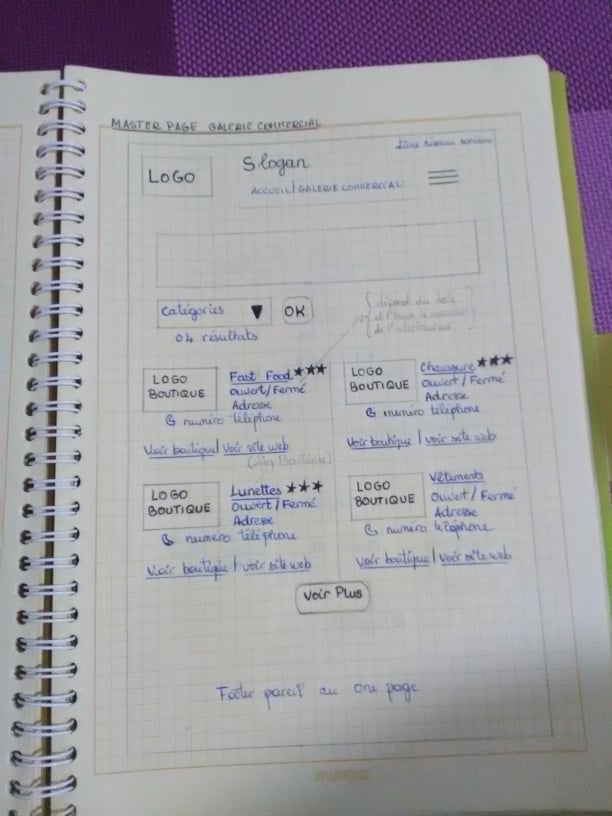 MASTER PAGE GALERIE COMMERCIAL
LOGO
Slogan
ACCUEIL / GALERIE COMMERCIAL
Catégories ▼ OK
04 résultats
dépend du date
et l'heure de
LOGO BOUTIQUE
Fast Food ★★★
Ouvert/Fermé
Adresse
numéro téléphone
Voir boutique / Voir site web
LOGO BOUTIQUE
Chaussure ★★★
Ouvert/Fermé
Adresse
numéro téléphone
Voir boutique / voir site web
LOGO BOUTIQUE
Lunettes ★★★
Ouvert/Fermé
Adresse
numéro téléphone
Voir boutique / voir site web
LOGO BOUTIQUE
Vêtements
Ouvert / Fermé
Adresse
numéro téléphone
Voir boutique / Voir site web
Voir Plus
Footer pareil au one page